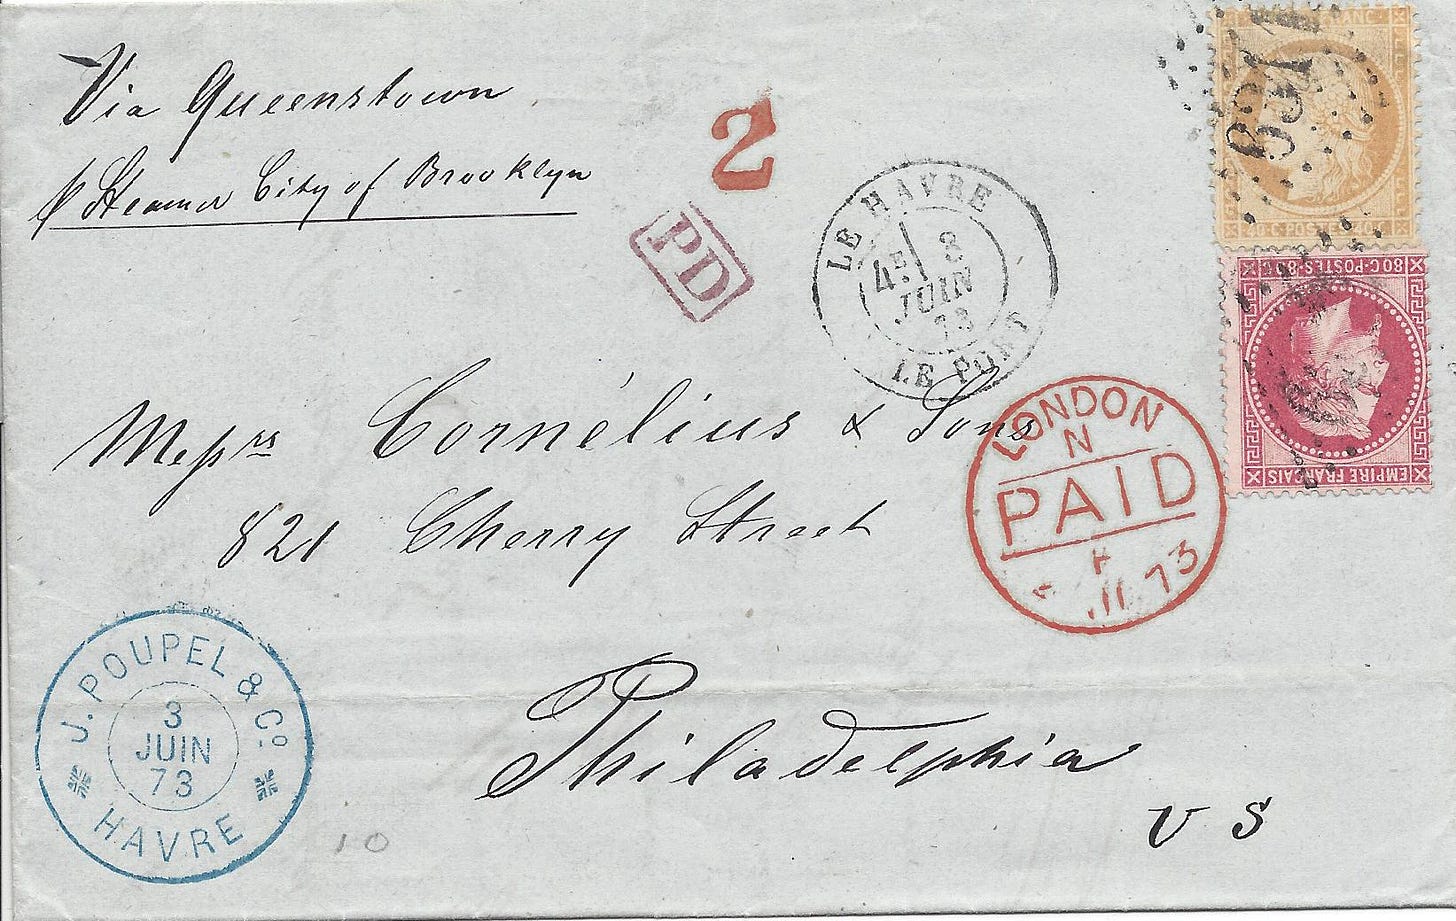 Via Queenstown
p Steamer City of Brooklyn
2
PD
LE HAVRE
4E 3
JUIN
73
LE PORT
FRANC
40 C POSTES 40
80 C POSTES 80
EMPIRE FRANÇAIS
Messrs Cornélius & Sons
821 Cherry Street
Philadelphia
U S
LONDON
N
PAID
73
J. POUPEL & Co.
3
JUIN
73
HAVRE
10